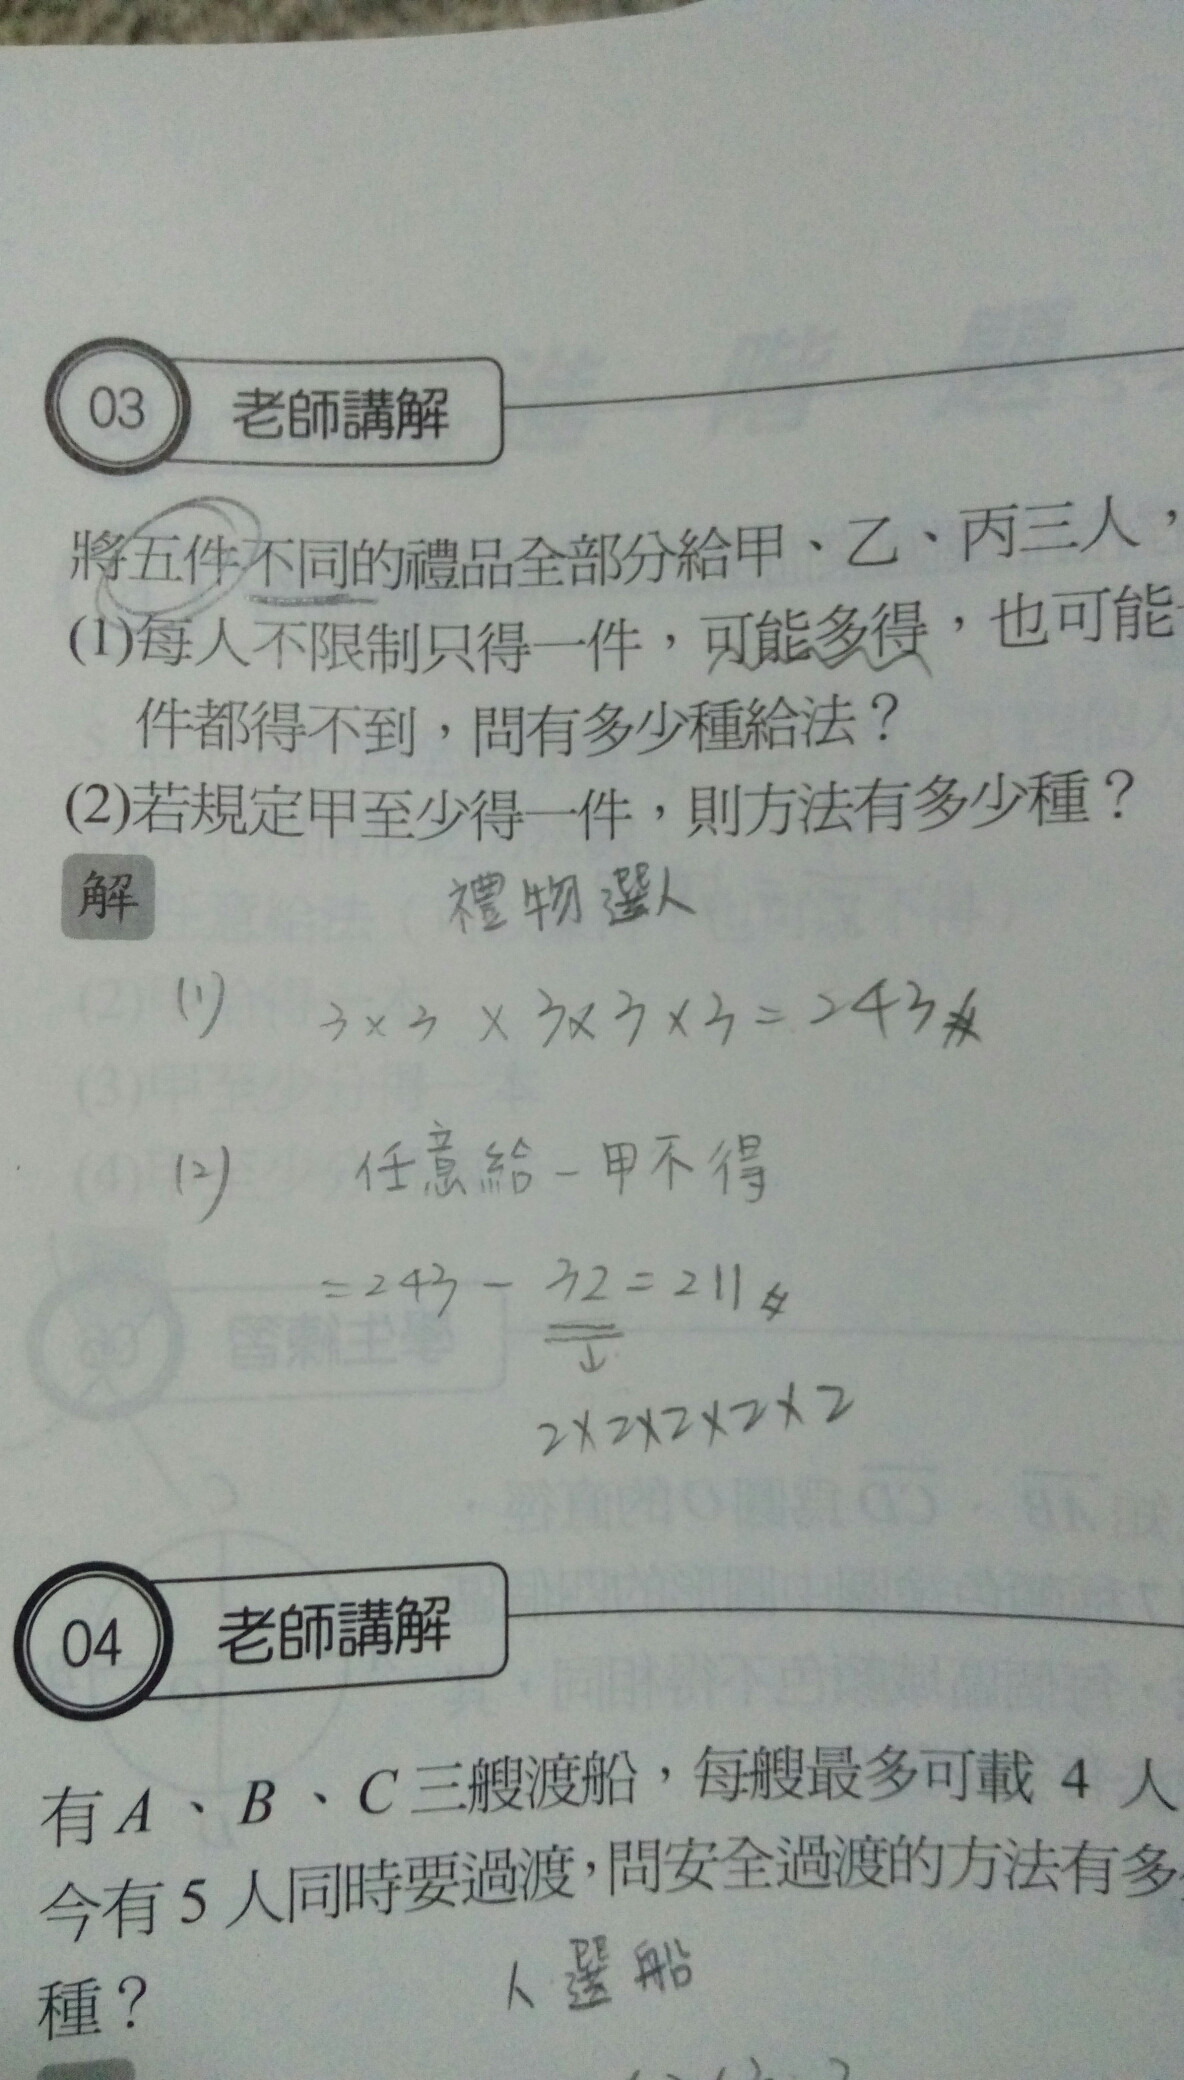 03 老師講解
將五件不同的禮品全部分給甲、乙、丙三人，
(1)每人不限制只得一件，可能多得，也可能
件都得不到，問有多少種給法？
(2)若規定甲至少得一件，則方法有多少種？
解
禮物選人
(1) 3×3×3×3×3=243
(2) 任意給－甲不得
=243－32=211
↓
2×2×2×2×2
04 老師講解
有A、B、C三艘渡船，每艘最多可載 4 人
今有 5 人同時要過渡，問安全過渡的方法有多
種？
人選船